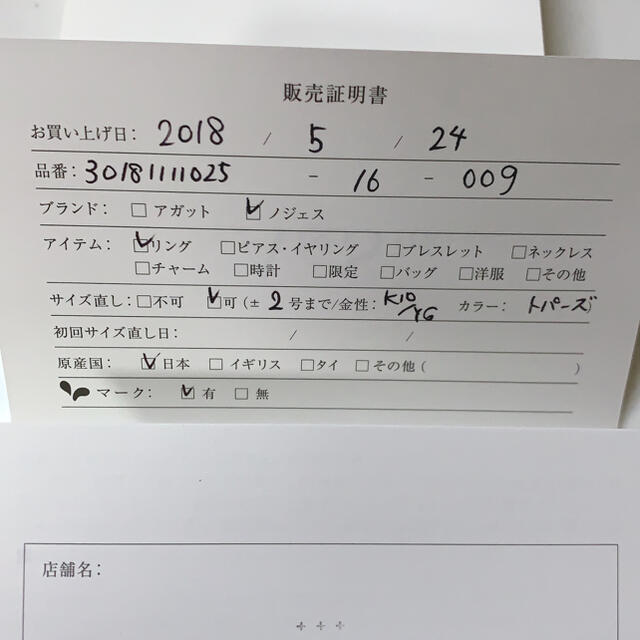 販売証明書
お買い上げ日: 2018 / 5 / 24
品番: 30181111025 - 16 - 009
ブランド: □ アガット ☑ ノジェス
アイテム: ☑リング □ピアス・イヤリング □ブレスレット □ネックレス
□チャーム □時計 □限定 □バッグ □洋服 □その他
サイズ直し: □不可 ☑可 (± 2 号まで/金性: K10/YG カラー: トパーズ)
初回サイズ直し日: / /
原産国: ☑日本 □イギリス □タイ □その他 ( )
マーク: ☑ 有 □ 無
店舗名: